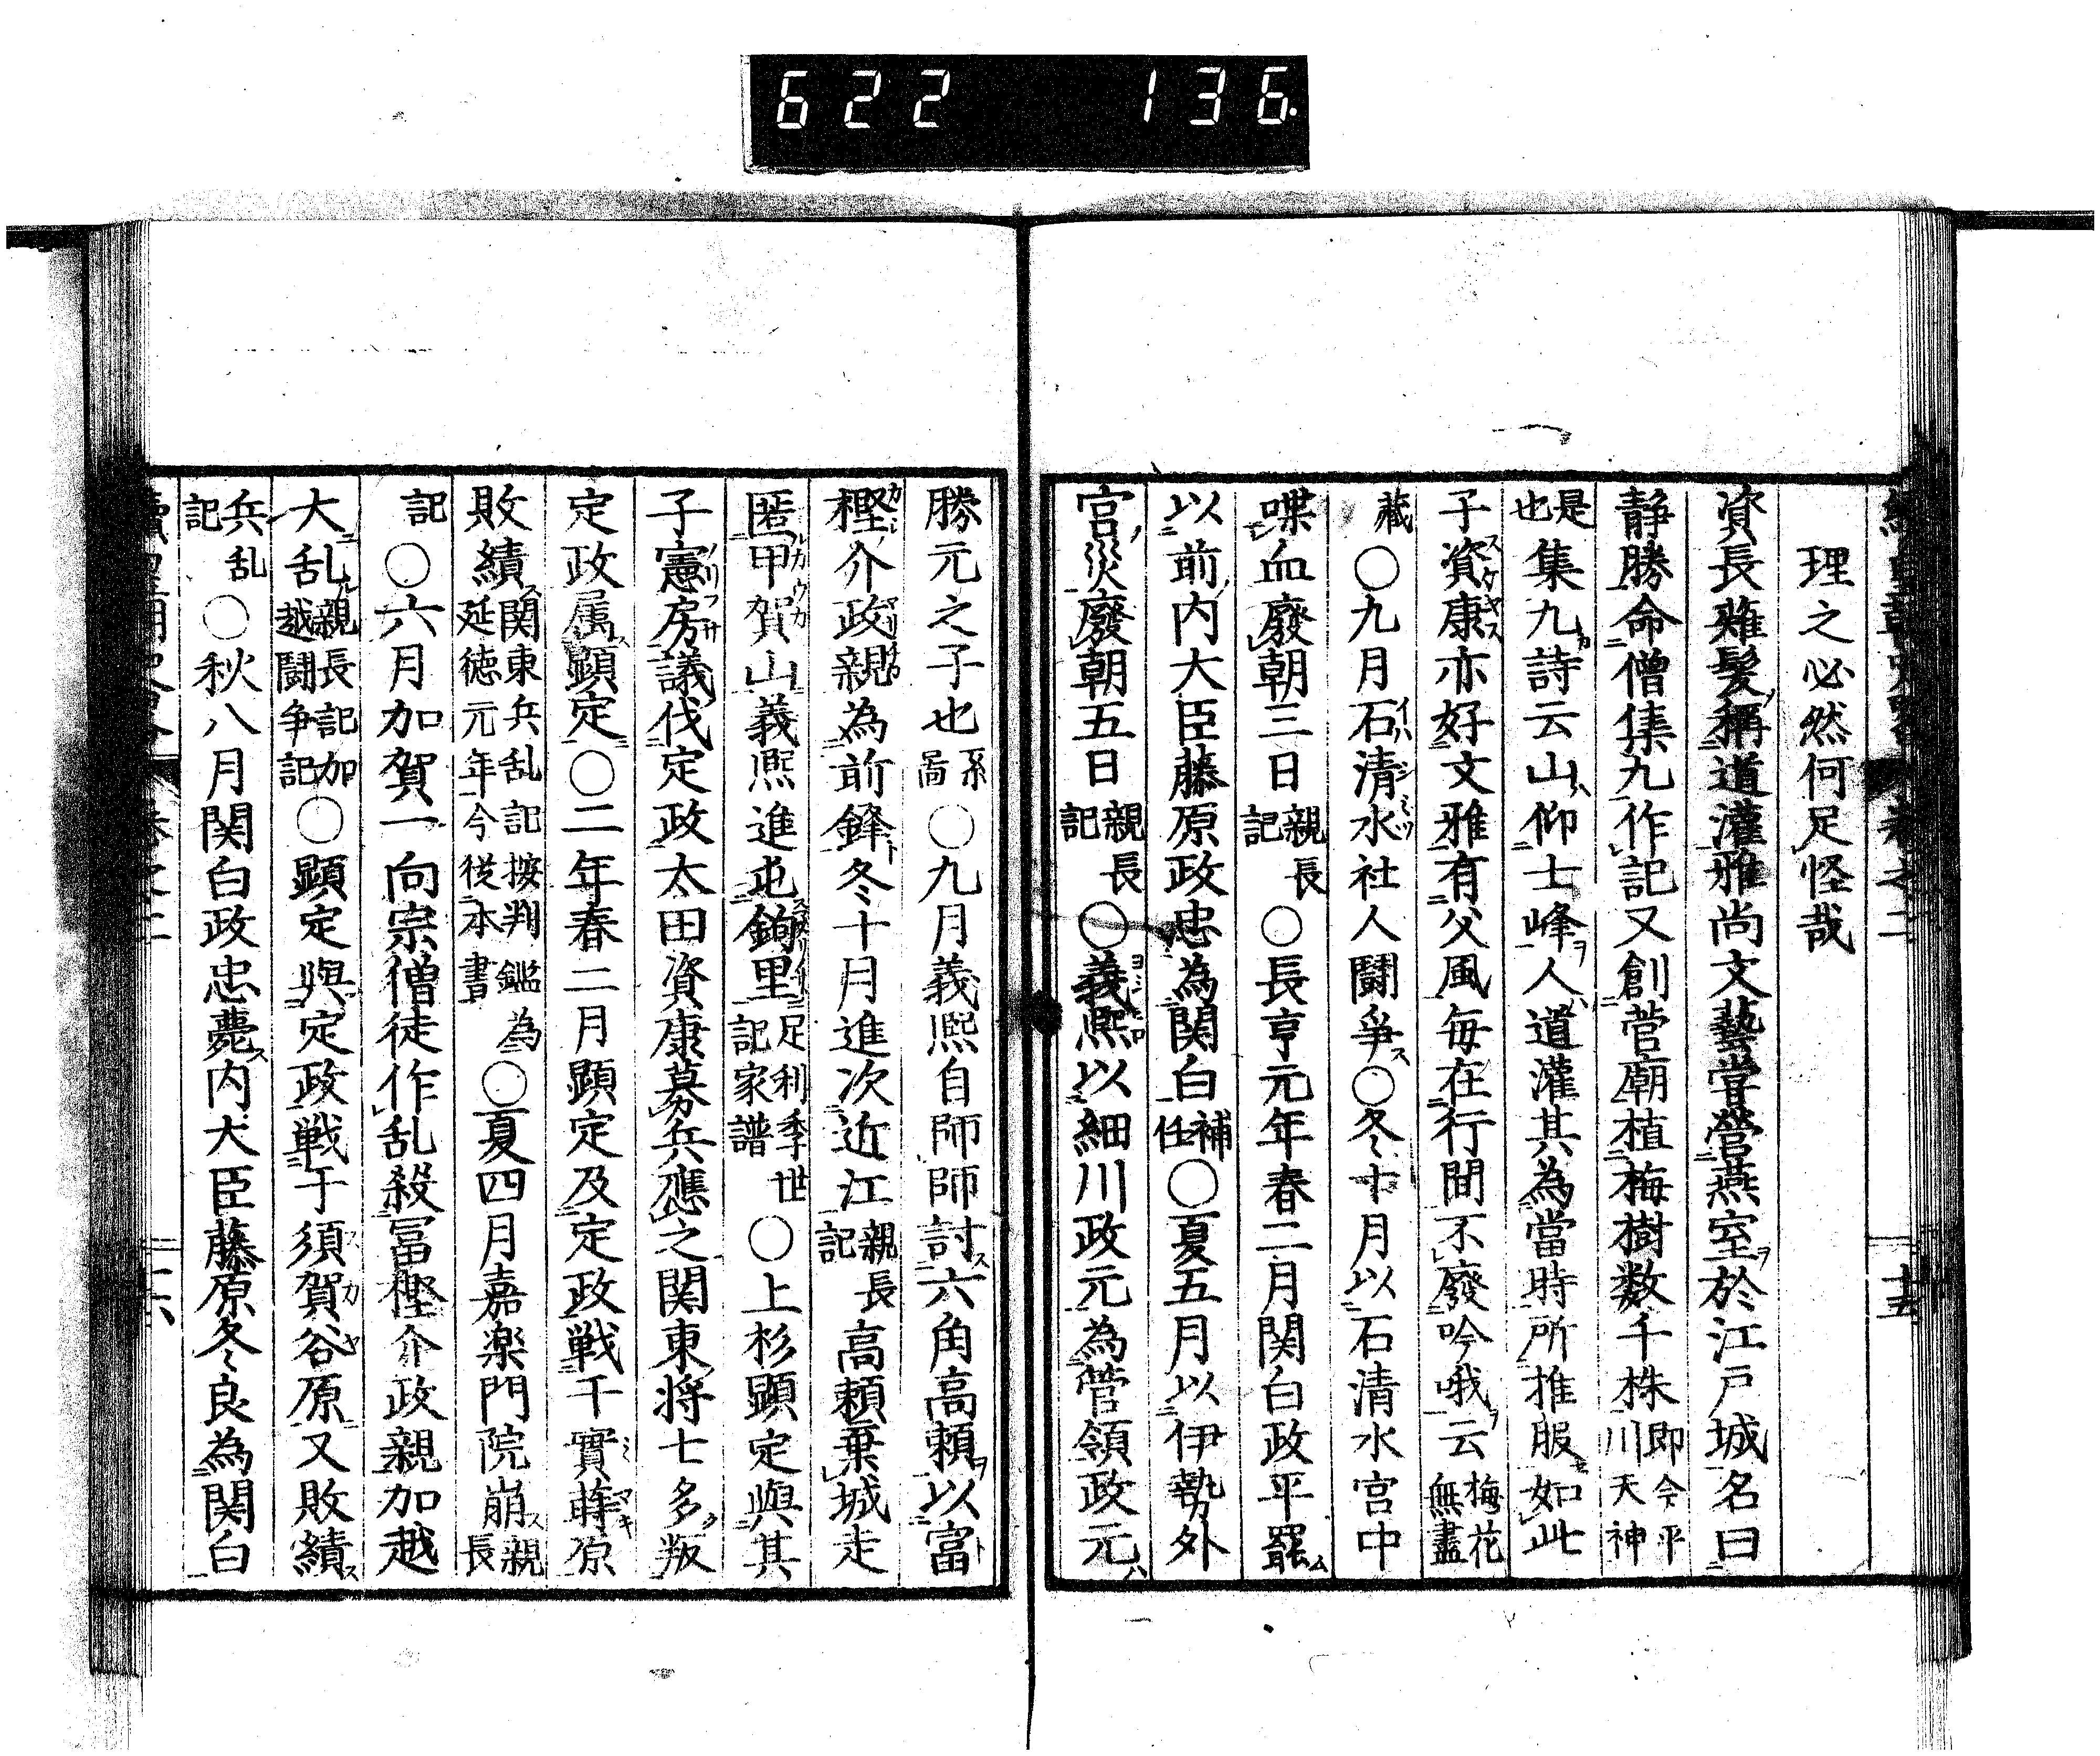 622 136
理之必然何足怪哉
資長薙髪稱道灌雅尚文藝嘗營燕室於江戸城名曰
静勝命僧集九作記又創菅廟植梅樹数千株即今平川天神
是也集九詩云山仰士峰人道灌其為當時所推服如此
子資康亦好文雅有父風毎在行間不廢吟哦云梅花無盡
藏〇九月石清水社人闘爭〇冬十月以石清水宮中
喋血廢朝三日親長記〇長亨元年春二月関白政平罷
以前内大臣藤原政忠為関白補任〇夏五月以伊勢外
宮災廢朝五日親長記〇義熈以細川政元為管領政元
勝元之子也系啚〇九月義熈自師師討六角高頼以富
樫介政親為前鋒冬十月進次近江親長記高頼棄城走
匿甲賀山義熈進屯鉤里足利季世記家譜〇上杉顕定與其
子憲房議伐定政太田資康募兵應之関東将士多叛
定政属顕定〇二年春二月顕定及定政戦于實蒔原
敗績関東兵乱記按判鑑為延徳元年今従本書〇夏四月嘉楽門院崩親長
記〇六月加賀一向宗僧徒作乱殺冨樫介政親加越
大乱親長記加越闘争記〇顕定與定政戦于須賀谷原又敗績
兵乱記〇秋八月関白政忠薨内大臣藤原冬良為関白